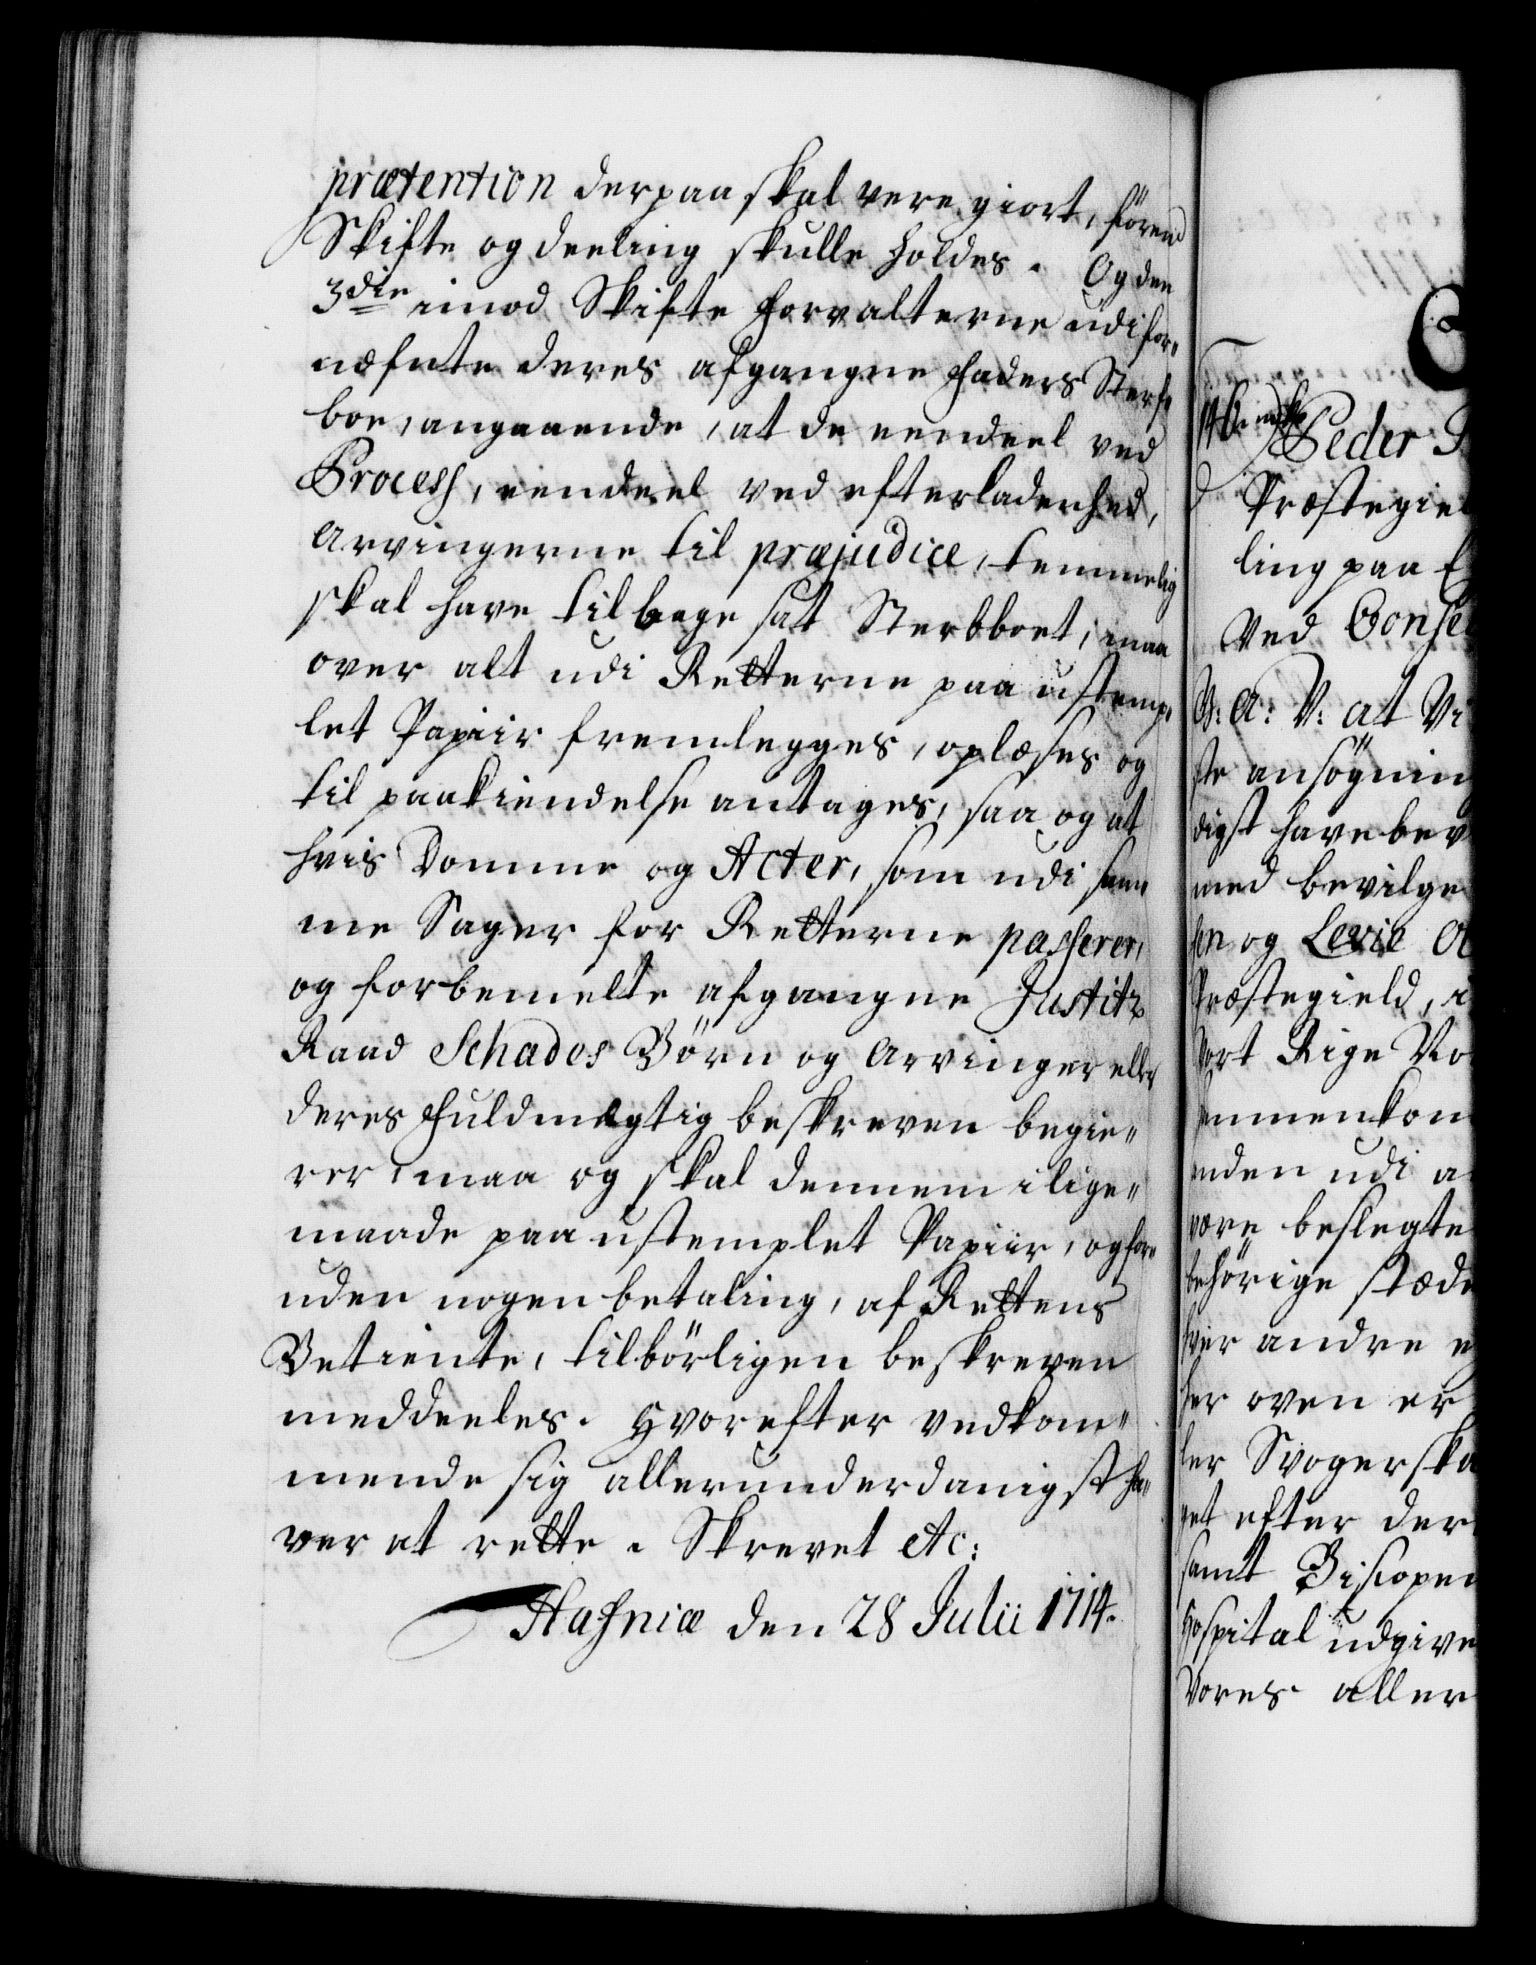 prætention derpaa skal vere giort, förend
Skifte og deeling skulle holdes. Og den
3die imod Skifte Forvalterne udi for„
nefnte deres afgangne Faders Sterf„
boe, angaaende, at de eendeel ved
Process, eendeel ved efterladenhed,
Arvingerne til præjudice, temmelig
skal have tilbage sat Sterbboet; maa
over alt udi Retterne paa ustemp„
let Papiir fremlegges, oplæses og
til paakiendelse antages, saa og at
hvis Domme og Acter, som udi sam„
me Sager for Retterne passerer,
og forbemelte afgangne Justitz
Raad Schades Börn og Arvinger eller
deres Fuldmegtig beskreven begie„
rer, maa og skal dennem i lige„
maade paa ustemplet Papiir, og
uden nogen betaling, af Rettens
Betiente, tilbörligen beskreven
meddeeles. Hvorefter vedkom„
mende sig allerunderdanigst ha„
ver at rette. Skrevet etc:
Hafniæ den 28 Julii 1714.
Peder
Præstegiel
ling paa
Ved Consei
G: A: V: at Vi
ste ansögnin
digst have bev
med bevilge
sen og Levie
Præstegield, i
Vort Rige No
ammenkom
anden udi a
være beslegte
behörige stæde
hver andre e
her oven er
ler Svogerska
get efter der
samt Biscopen
Hospital udgive
Vores aller